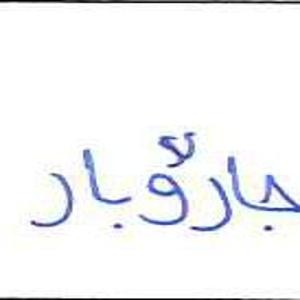 جارۆبار